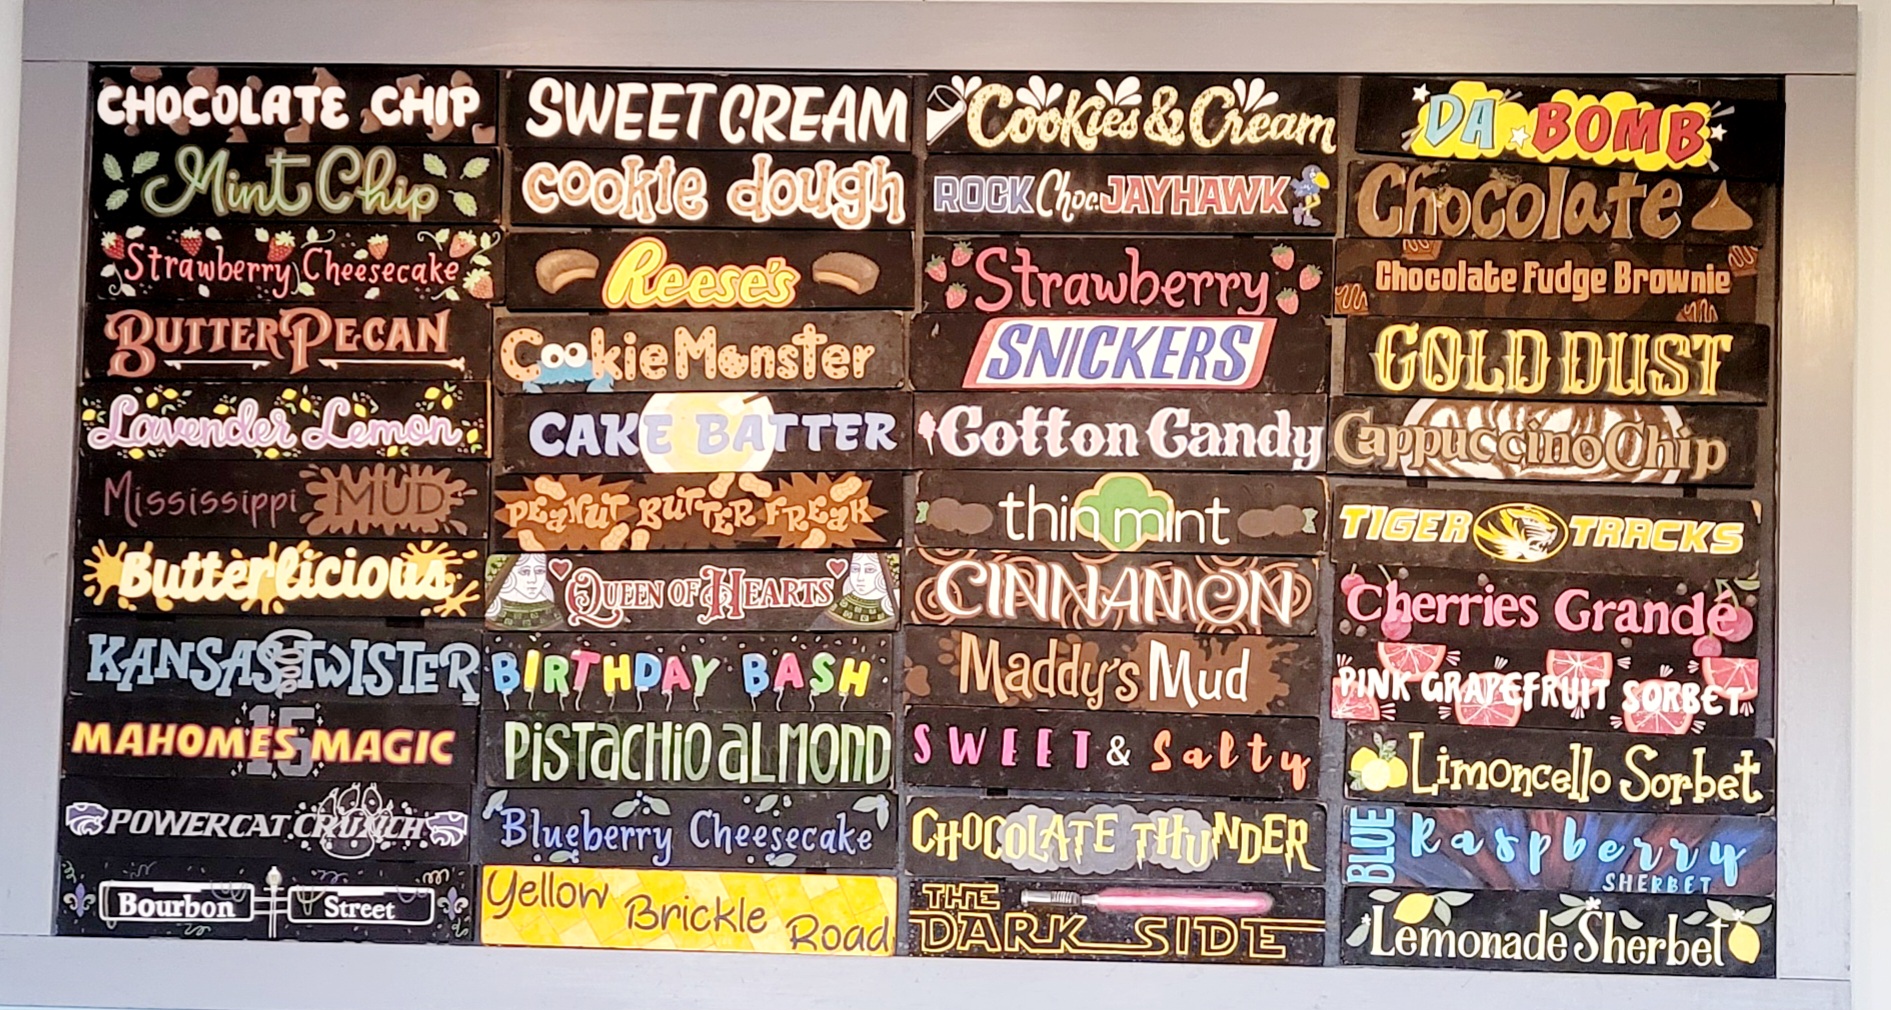 CHOCOLATE CHIP
Mint Chip
Strawberry Cheesecake
BUTTER PECAN
Lavender Lemon
Mississippi MUD
Butterlicious
KANSAS TWISTER
15
MAHOMES MAGIC
POWERCAT CRUNCH
Bourbon Street
SWEET CREAM
cookie dough
Reese's
Cookie Monster
CAKE BATTER
PEANUT BUTTER FREAK
QUEEN OF HEARTS
BIRTHDAY BASH
PISTACHIO ALMOND
Blueberry Cheesecake
Yellow Brickle Road
Cookies & Cream
ROCK Choc. JAYHAWK
Strawberry
SNICKERS
Cotton Candy
thin mint
CINNAMON
Maddy's Mud
SWEET & Salty
CHOCOLATE THUNDER
THE
DARK SIDE
DA BOMB
Chocolate
Chocolate Fudge Brownie
GOLD DUST
Cappuccino Chip
TIGER TRACKS
Cherries Grandé
PINK GRAPEFRUIT SORBET
Limoncello Sorbet
BLUE Raspberry
SHERBET
Lemonade Sherbet